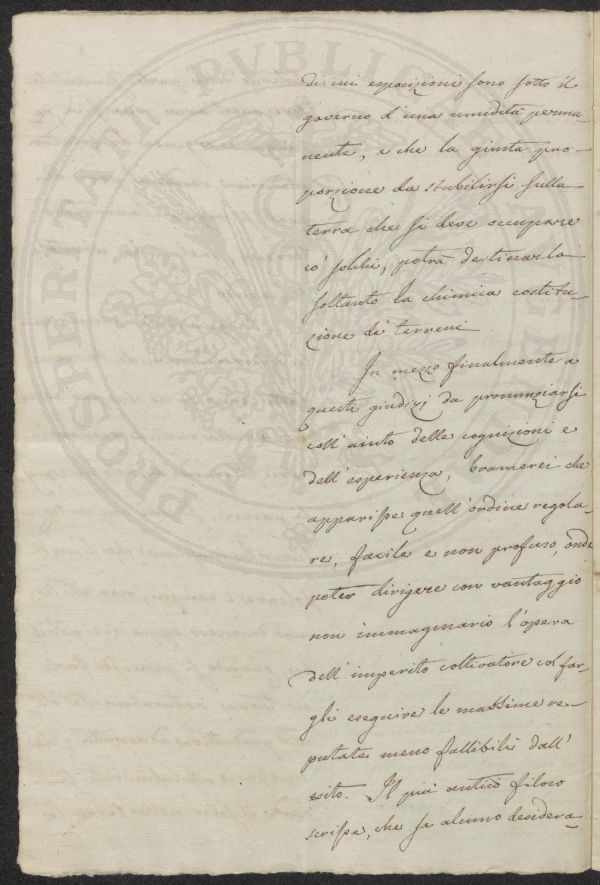 di cui esposizioni sono sotto il
governo d'una umidità perma-
nente, e che la giusta pro-
porzione da stabilirsi sulla
terra che si deve occupare
co' solchi, potrà destinarla
soltanto la chimica costitu-
zione de' terreni.
In mezzo finalmente a
questi giudizj da pronunziarsi
coll' aiuto delle cognizioni e
dell' esperienza, bramerei che
apparisse quell' ordine regola-
re, facile e non profuso, onde
poter dirigere con vantaggio
non immaginario l'opera
dell' imperito coltivatore col far-
gli eseguire le massime re-
putate meno fallibili dall'
esito. Il più antico filoso
scrisse, che se alcuno desidera-
PROSPERITATI PVBLICAE